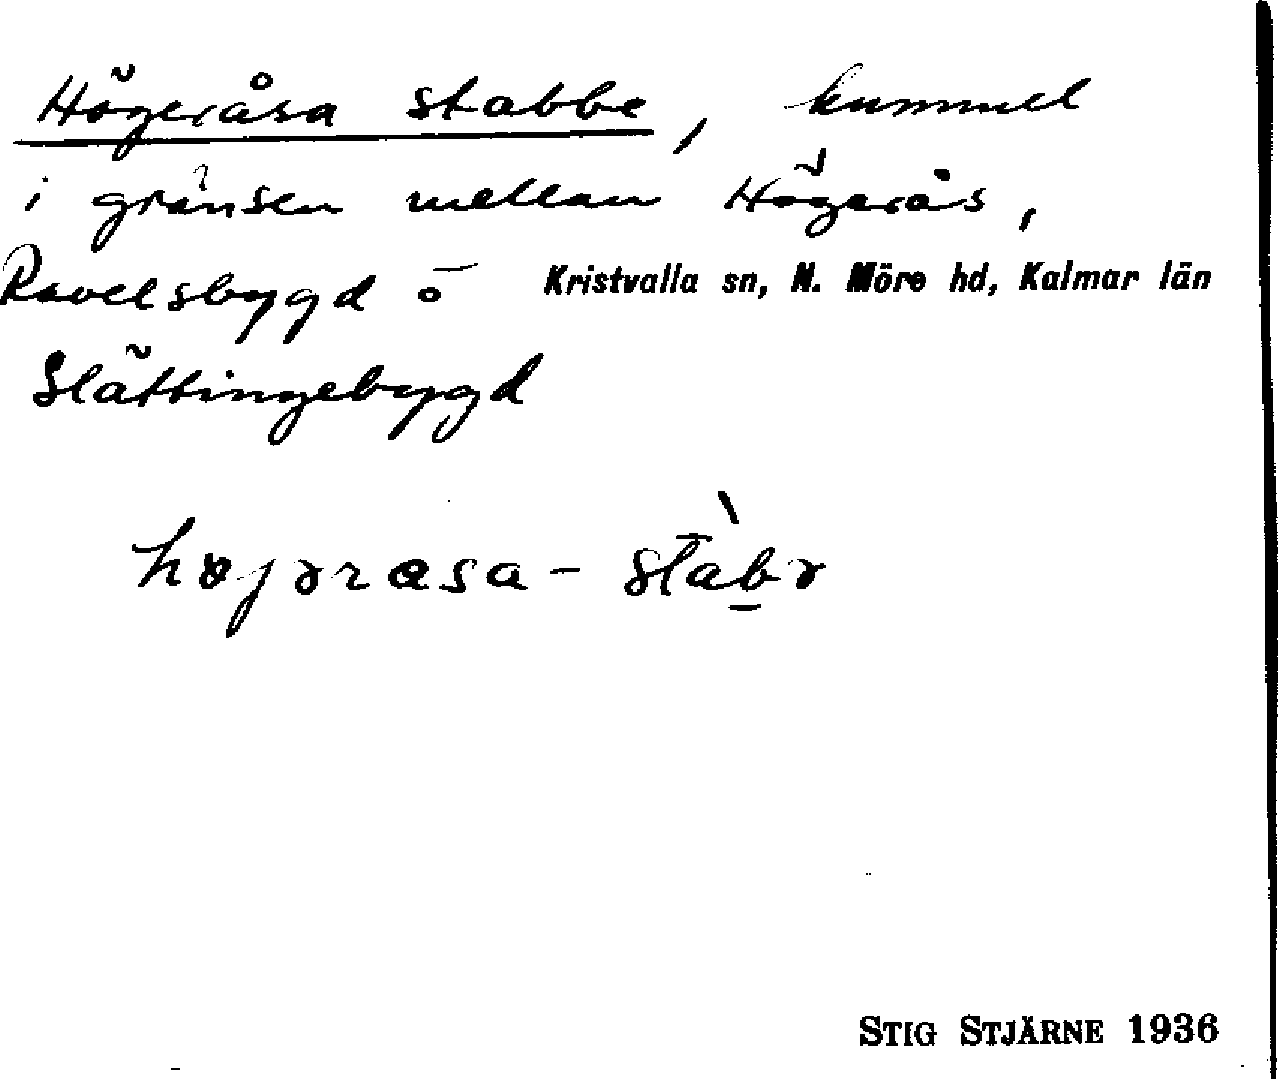 Högeråsa stabbe, kummel
i gränsen mellan Högerås,
Ravelsbygd o Kristvalla sn, N. Möre hd, Kalmar län
Slättingebygd
højərasa - stàb̲ə
STIG STJÄRNE 1936